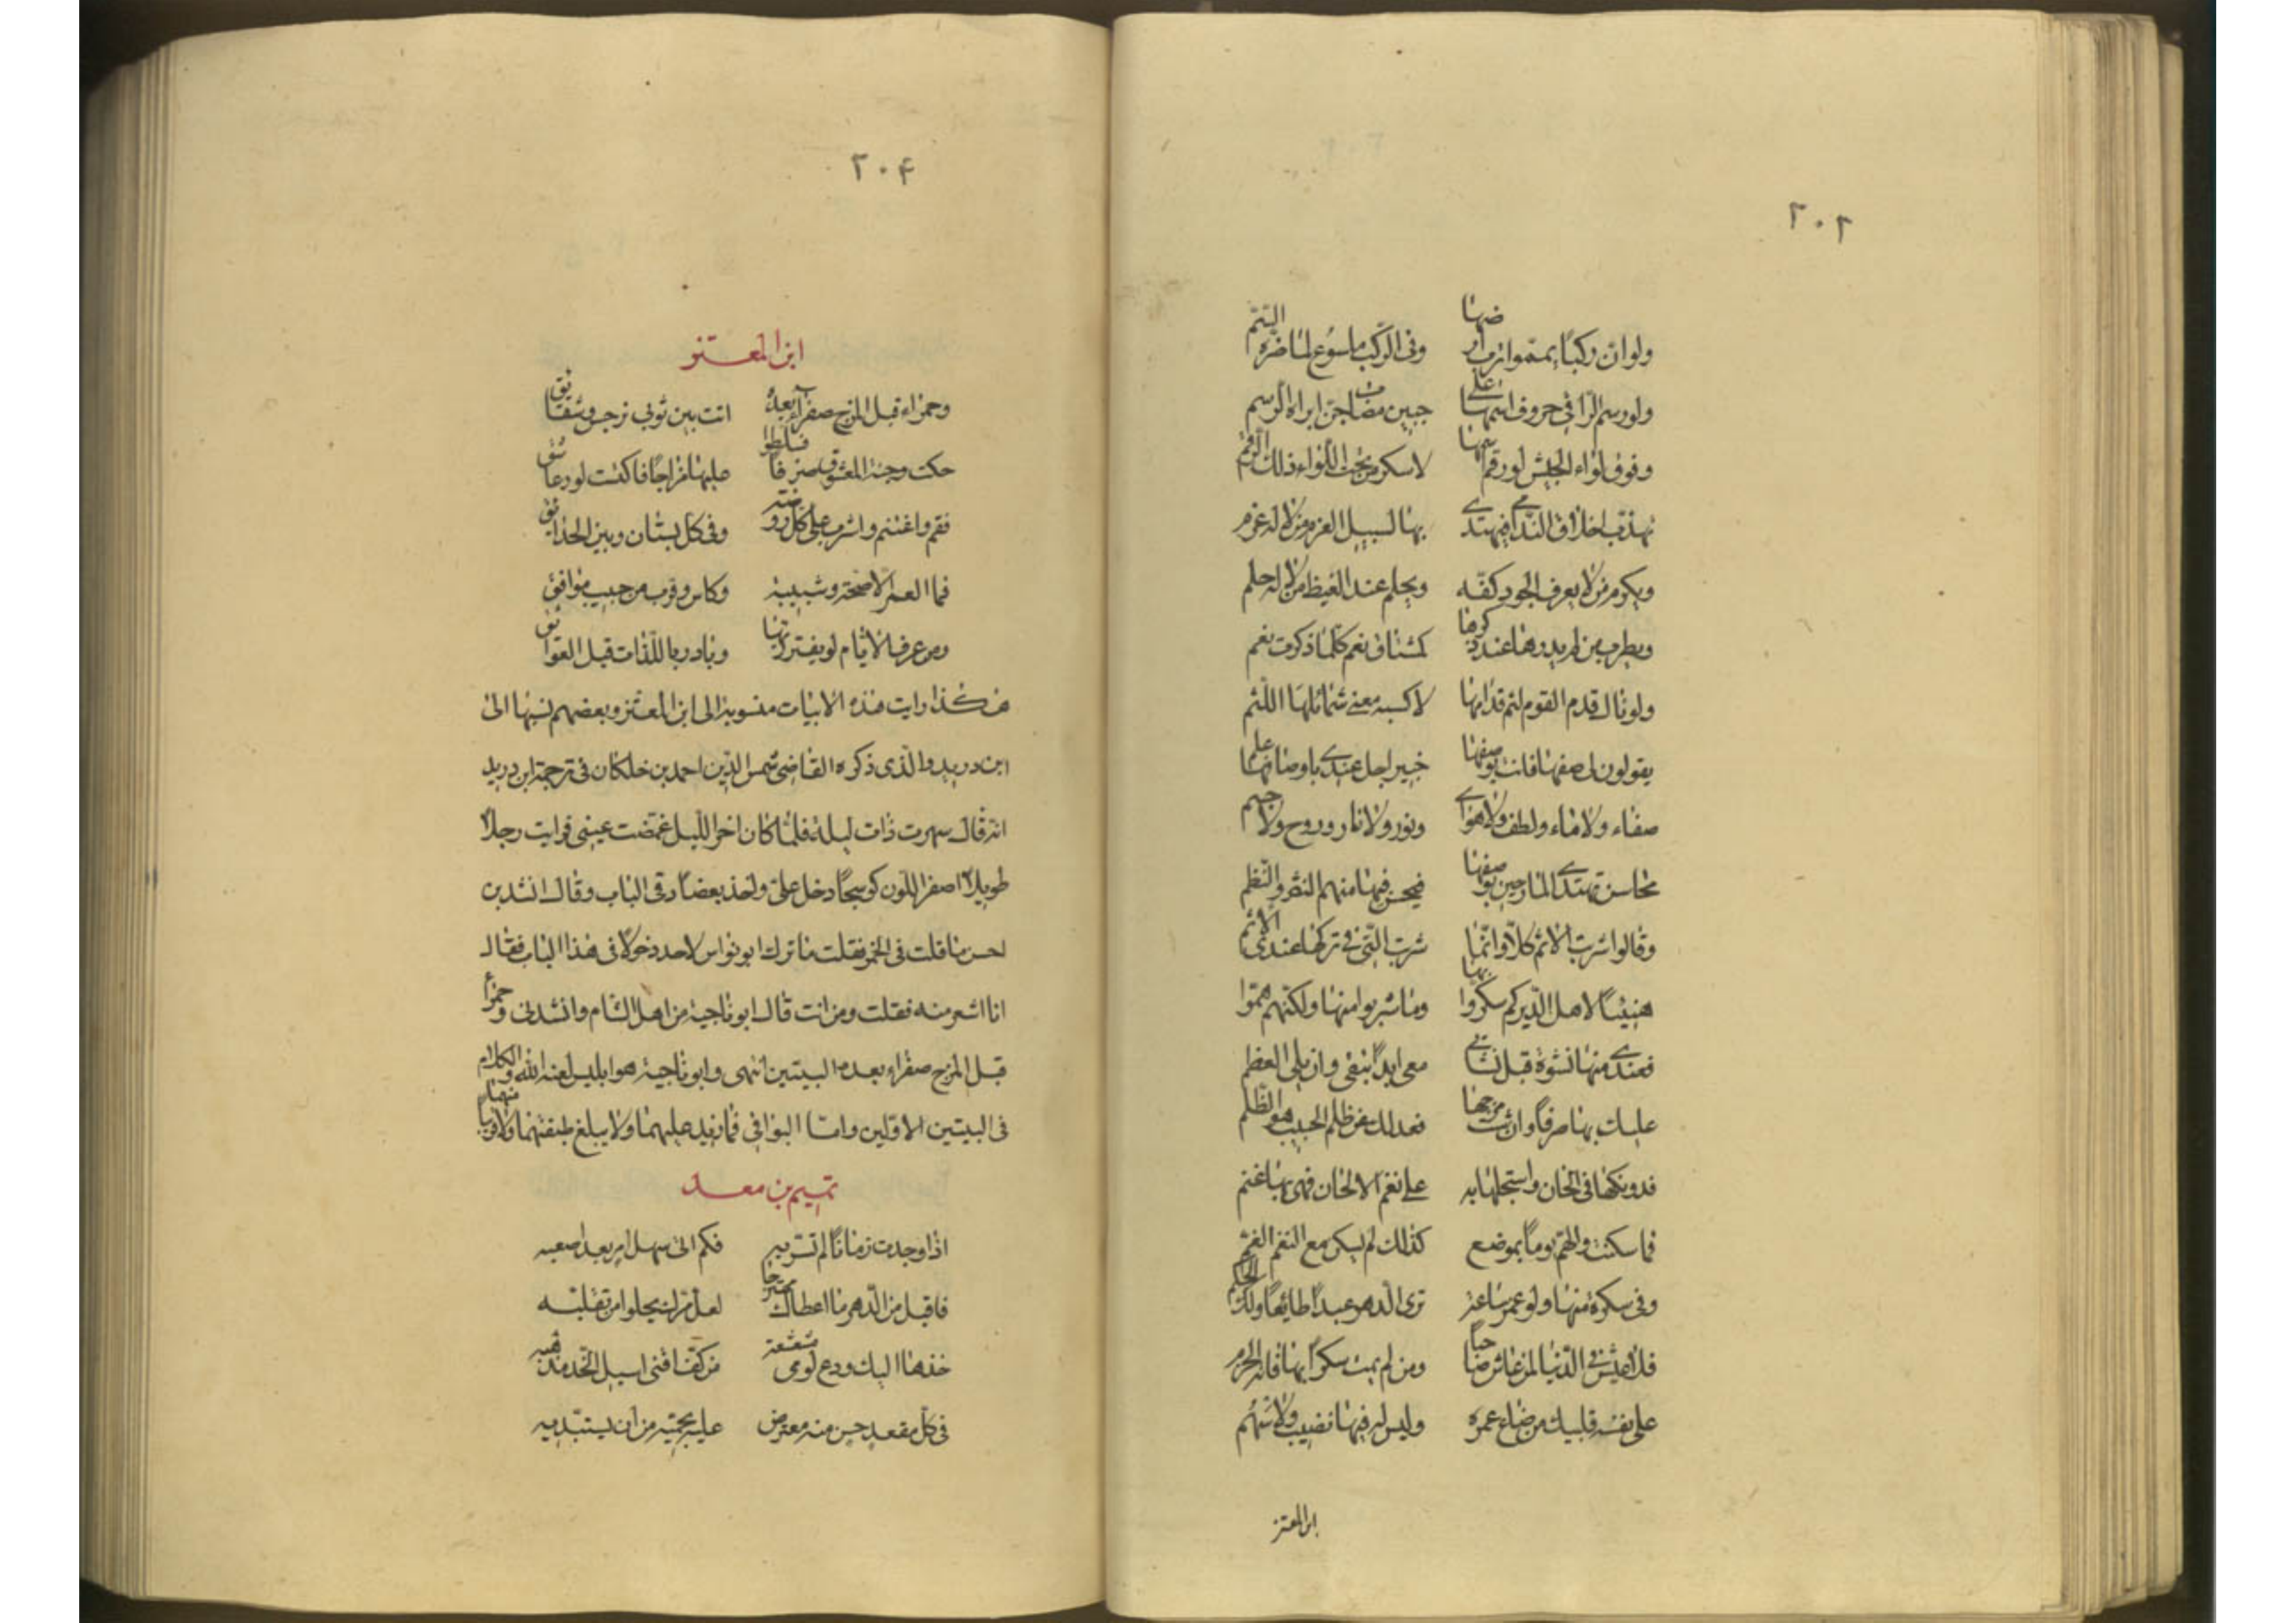 ٢٠٢
ولو ان ركبًا يمموا ترب ارضها وفى الركب ملسوع لما ضره السم
ولو رسم الراقي حروف اسمها على جبين مصاب جن ابراه الرسم
وفوق لواء الجيش لو رقم اسمها لاسكر من تحت اللواء ذلك الرقم
تهذب اخلاق الندامى فيهتدى بها لسبيل العزم من لا له عزم
ويكرم من لا يعرف الجود كفه ويحلم عند الغيظ من لا له حلم
ويطرب من لم يدرها عند ذكرها كمشتاق نعم كلما ذكرت نعم
ولو نال قدم القوم لثم قدامها لاكسبه معنى شمائلها اللثم
يقولون لى صفها فانت بوصفها خبير اجل عندى باوصافها علم
صفاء ولا ماء ولطف ولا هوى ونور ولا نار وروح ولا جسم
محاسن تهتدى المادحين بوصفها فيحسن فيها منهم النثر والنظم
وقالوا شربت الاثم كلا وانما شربت التى فى تركها عندى الاثم
هنيئًا لاهل الدير كم سكروا بها وما شربوا منها ولكنهم هموا
فعندى منها نشوة قبل نشأتى معى ابدًا تبقى وان بلى العظم
عليك بها صرفًا وان شئت مزجها فعدلك عن ظلم الحبيب هو الظلم
فدونكها فى الحان واستجلها به على نغم الالحان فهى بها غنم
فما سكنت والهم يومًا بموضع كذلك لم يسكن مع النغم الغم
وفى سكرة منها ولو عمر ساعة ترى الدهر عبدًا طائعًا ولك الحكم
فلا عيش فى الدنيا لمن عاش صاحيًا ومن لم يمت سكرًا بها فاته الحزم
على نفسه فليبك من ضاع عمره وليس له فيها نصيب ولا سهم
ابن المعتز
٢٠٤
ابن المعتز
وحمراء قبل المزج صفراء بعده اتت بين ثوبى نرجس وشقائق
حكت وجنة المعشوق صرفًا فسلطوا عليها مزاجًا فاكتست لون عاشق
فقم واغتنم واشرب على كل روضة وفى كل بستان وبين الحدائق
فما العمر الا صحة وشبيبة وكاس وقرب من حبيب موافق
ومن عرف الايام لم يغترر بها وبادر باللذات قبل العوائق
هكذا رايت هذه الابيات منسوبة الى ابن المعتز وبعضهم نسبها الى
ابن دريد والذى ذكره القاضى شمس الدين احمد بن خلكان فى ترجمة ابن دريد
انه قال سهرت ذات ليلة فلما كان اخر الليل غمضت عينى فرايت رجلا
طويلا اصفر اللون كوسجًا دخل على واخذ بعضادتى الباب وقال انشدنى
احسن ما قلت فى الخمر فقلت ما ترك ابو نواس لاحد دخولا فى هذا الباب فقال
انا اشعر منه فقلت ومن انت قال ابو ناجية من اهل الشام وانشدنى وحمراء
قبل المزج صفراء بعده البيتين انتهى وابو ناجية هو ابليس لعنه الله والكلام
فى البيتين الاولين واما البواقى فما زيد عليهما ولا يبلغ طبقتهما ولا قريبا منها
تميم بن معد
اذا وجدت زمانًا لم تسر به فكم الى سهل امر بعد اصعبه
فاقبل من الدهر ما اعطاك ممتزجا لعل مرك يحلو من تقلبه
خذها اليك ودع لومى مشعشعة من كف اقنى اسيل الخد مذهبه
فى كل مقعد حسن منه معترض عليه يحميه من ان يستبد به